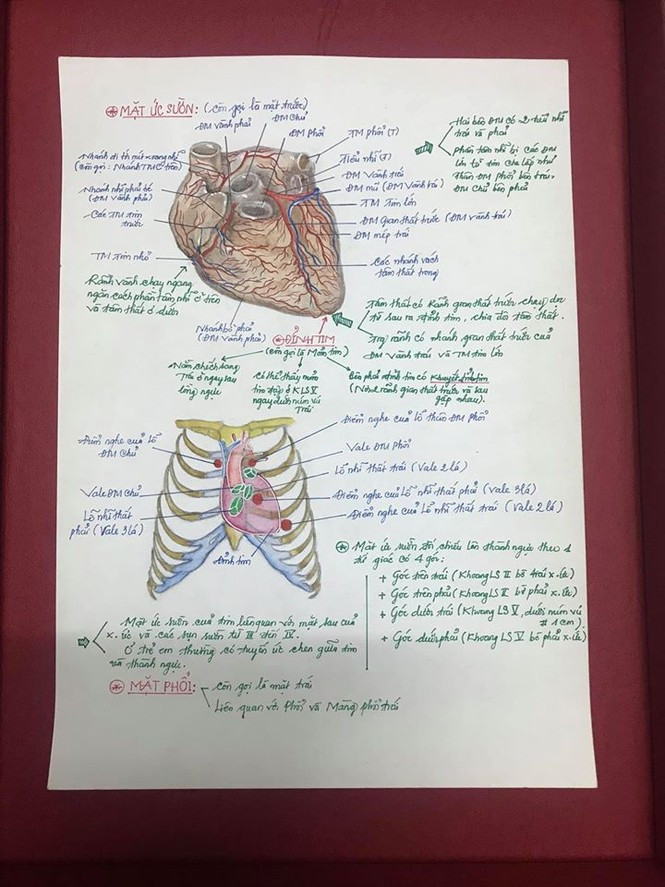 ⊛ MẶT ỨC SƯỜN: (còn gọi là mặt trước)
ĐM Chủ
ĐM Vành phải
ĐM Phổi
TM phổi (T)
Tiểu nhĩ (T)
ĐM Vành trái
ĐM mũ (ĐM Vành trái)
TM Tim lớn
ĐM Gian thất trước (ĐM vành trái)
ĐM mép trái
Các nhánh vách
tâm thất trong
Nhánh đi tới nút xoang nhĩ
(Còn gọi: Nhánh TMC trên)
Nhánh nhĩ phải bé
(ĐM Vành phải)
Các TM tim
trước
TM Tim nhỏ
Rãnh vành chạy ngang
ngăn cách phần tâm nhĩ ở trên
và tâm thất ở dưới
Nhánh bờ phải
(ĐM Vành phải)
Hai bên ĐM có 2 tiểu nhĩ
trái và phải
Phần tâm nhĩ bị các ĐM
lớn từ tim che lấp như
Thân ĐM Phổi bên trái,
ĐM Chủ bên phải
Tâm thất có Rãnh gian thất trước chạy dọc
từ sau ra đỉnh tim, chia đôi tâm thất.
Trong rãnh có nhánh gian thất trước của
ĐM Vành trái và TM tim lớn
⊛ ĐỈNH TIM
(Còn gọi là Mỏm tim)
Nằm chếch sang
Trái ở ngay sau
lồng ngực
Có thể thấy mỏm
tim đập ở KLS V
ngay dưới núm vú
Trái
Bên phải đỉnh tim có Khuyết đỉnh tim
(Nơi 2 rãnh gian thất trước và sau
gặp nhau).
Điểm nghe của Lỗ
ĐM Chủ
Vale ĐM Chủ
Lỗ nhĩ thất
phải (Vale 3 lá)
Đỉnh tim
Điểm nghe của lỗ thân ĐM Phổi
Vale ĐM Phổi
Lỗ nhĩ thất trái (Vale 2 lá)
Điểm nghe của Lỗ nhĩ thất phải (Vale 3 lá)
Điểm nghe của Lỗ nhĩ thất trái (Vale 2 lá)
⊛ Mặt ức sườn đối chiếu lên thành ngực theo 1
tứ giác có 4 góc:
+ Góc trên trái (Khoang LS II bờ trái x.ức)
+ Góc trên phải (Khoang LS II bờ phải x.ức)
+ Góc dưới trái (Khoang LS V, dưới núm vú
# 1 cm).
+ Góc dưới phải (Khoang LS V bờ phải x.ức)
Mặt ức sườn của tim liên quan với mặt sau của
x.ức và các sụn sườn từ III đến IV.
Ở trẻ em thường có tuyến ức chen giữa tim
và thành ngực.
⊛ MẶT PHỔI:
còn gọi là mặt trái
Liên quan với Phổi và Màng phổi trái